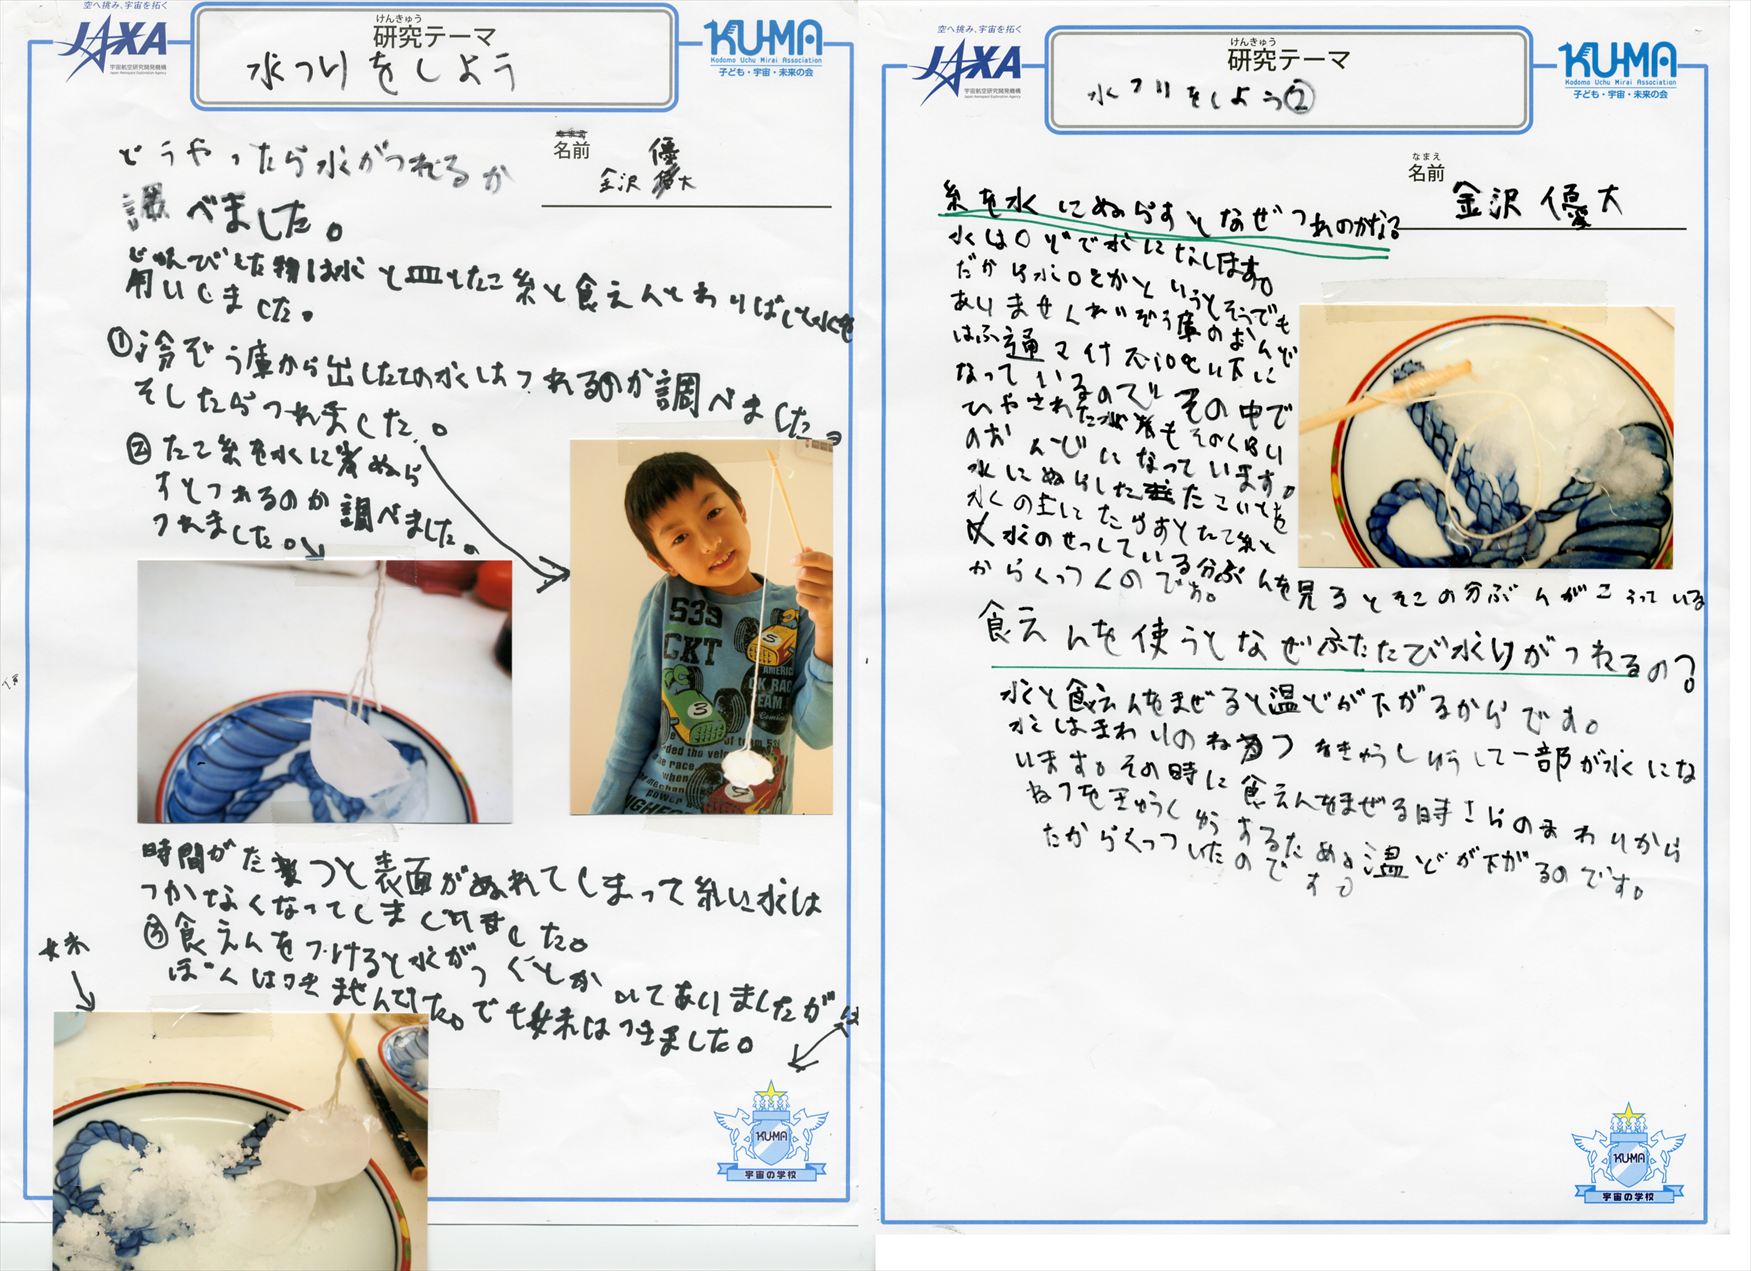 空へ挑み、宇宙を拓く
JAXA
宇宙航空研究開発機構
Japan Aerospace Exploration Agency
けんきゅう
研究テーマ
氷つりをしよう
KU-MA
Kodomo Uchu Mirai Association
子ども・宇宙・未来の会
なまえ
名前
優
金沢 大
どうやったら氷がつれるか
調べました。
じゅんび した物は氷と皿とたこ糸と食えんとわりばしと水を
用いしました。
①冷ぞう庫から出したての氷はつれるのか調べました。
そしたらつれました。
②たこ糸を水にぬら
すとつれるのか調べました。
つれました。
539
CKT
AMERIC
CK RAC
TEAM
5
3
時間がたつと表面がぬれてしまって糸に氷は
つかなくなってしまいました。
③食えんをつけると氷がつくとかいてありましたが
ぼくはつきませんでした。でも妹はつきました。
妹
KU-MA
宇宙の学校
空へ挑み、宇宙を拓く
JAXA
宇宙航空研究開発機構
Japan Aerospace Exploration Agency
けんきゅう
研究テーマ
氷つりをしよう②
KU-MA
Kodomo Uchu Mirai Association
子ども・宇宙・未来の会
なまえ
名前
金沢 優大
糸を水にぬらすとなぜつれるのかな?
水は0どで氷になります。
だから氷は0どかというとそうでも
ありませんれいぞう庫のおんど
は普通マイナス10ど以下に
なっているので その中で
ひやされた氷もそのくらい
のおんどになっています。
水にぬらしたたこいとを
氷の上にたらすとたこ糸と
氷のせっしている分ぶんを見るとそこの分ぶんがこうっている
からくっつくのです。
食えんを使うとなぜふたたび氷がつれるの?
氷と食えんをまぜると温どが下がるからです。
氷はまわりのねつをきゅうしゅうして一部が水にな
います。その時に食えんをまぜる時さらのまわりから
ねつをきゅうしゅうするため温どが下がるのです。
だからくっついたのです。
KU-MA
宇宙の学校